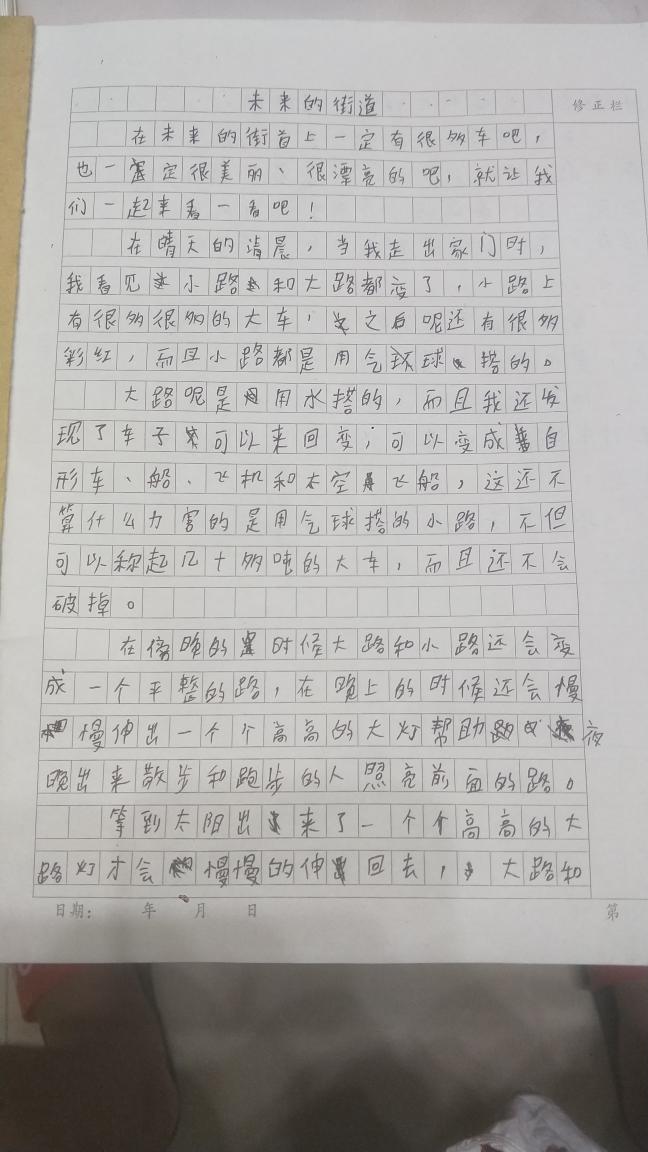 未来的街道
修正栏
在未来的街首上一定有很多车吧，
也一定很美丽、很漂亮的吧，就让我
们一起来看一看吧！
在晴天的清晨，当我走出家门时，
我看见小路和大路都变了，小路上
有很多很多的大车，之后呢还有很多
彩红，而且小路都是用气环球搭的。
大路呢是用水搭的，而且我还发
现了车子可以来回变；可以变成自
形车、船、飞机和太空飞船，这还不
算什么力害的是用气球搭的小路，不但
可以称起几十多吨的大车，而且还不会
破掉。
在傍晚的时候大路和小路还会变
成一个平整的路，在晚上的时候还会慢
慢伸出一个个高高的大灯帮助夜
晚出来散步和跑步的人照亮前面的路。
等到太阳出来了一个个高高的大
路灯才会慢慢的伸回去，大路和
日期： 年 月 日 第